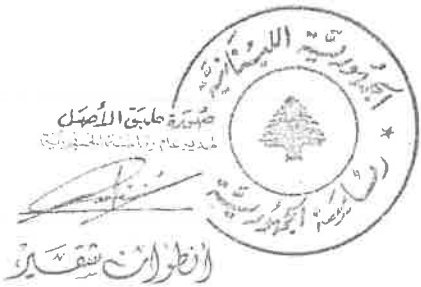 الجمهورية اللبنانية
رئاسة الجمهورية
صورة طبق الأصل
مدير عام رئاسة الجمهورية
انطوان شقير